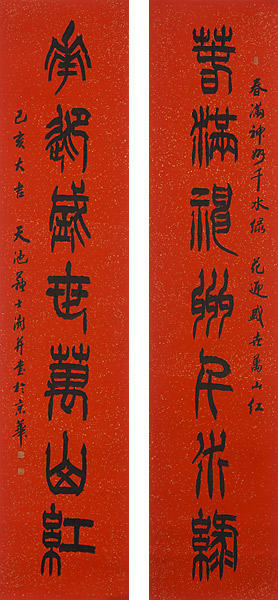 春滿神州千水綠 花迎盛世萬山紅
春滿神州千水綠
花迎盛世萬山紅
己亥大吉 天池蘇士澍并書於京華